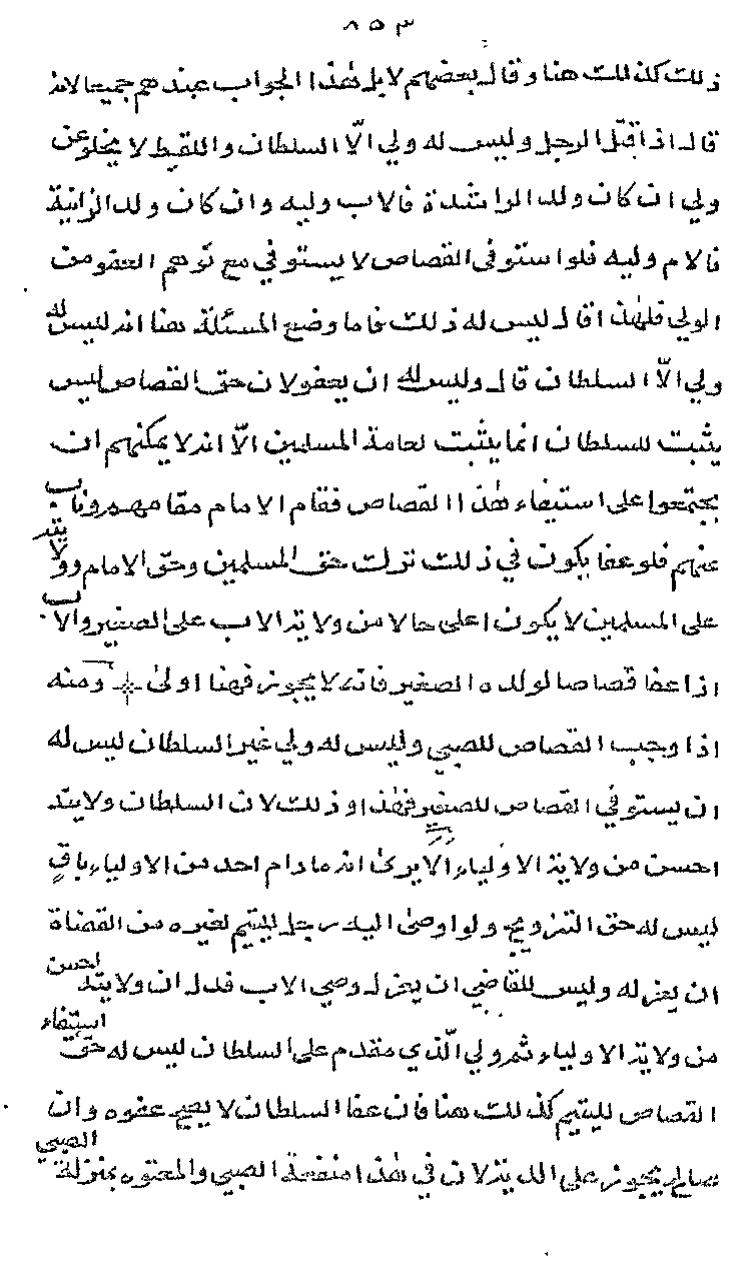 ٨٥٣
ذلك كذلك هنا وقال بعضهم لا بل هٰذا الجواب عندهم جميعا لانه
قال اذا قتل الرجل وليس له ولي الّا السلطان واللقيط لا يخلو عن
ولي ان كان ولد الراشدة فالاب وليه وان كان ولد الزانية
فالام وليه فلو استوفى القصاص لا يستوفي مع توهم العفو من
الولي فلهٰذا قال ليس له ذلك فاما وضع المسئلة هنا انه ليس له
ولي الّا السلطان قال وليس له ان يعفو لان حق القصاص ليس
يثبت للسلطان انما يثبت لعامة المسلمين الّا انه لا يمكنهم ان
يجتمعوا على استيفاء هٰذا القصاص فقام الامام مقامهم وناب
عنهم فلو عفا يكون في ذلك ترك حق المسلمين وحق الامام وولايته
على المسلمين لا يكون اعلى حالا من ولاية الاب على الصغير والاب
اذا عفا قصاصا لولده الصغير فانه لا يجوز فهنا اولى ومنه
اذا وجب القصاص للصبي وليس له ولي غير السلطان ليس له
ان يستوفي القصاص للصغير فهٰذا وذلك لان السلطان ولايته
احسن من ولاية الاولياء الا يرى انه ما دام احد من الاولياء باقٍ
ليس له حق التزويج ولو اوصى اليه رجل لليتيم لغيره من القضاة
ان يعزله وليس للقاضي ان يعزل وصي الاب فدل ان ولايته احسن
من ولاية الاولياء ثم ولي الّذي مقدم على السلطان ليس له حق استيفاء
القصاص لليتيم كذلك هنا فان عفا السلطان لا يصح عفوه وان
صالح يجوز على الدية لان في هٰذا منفعة الصبي والمعتوه بمنزلة الصبي